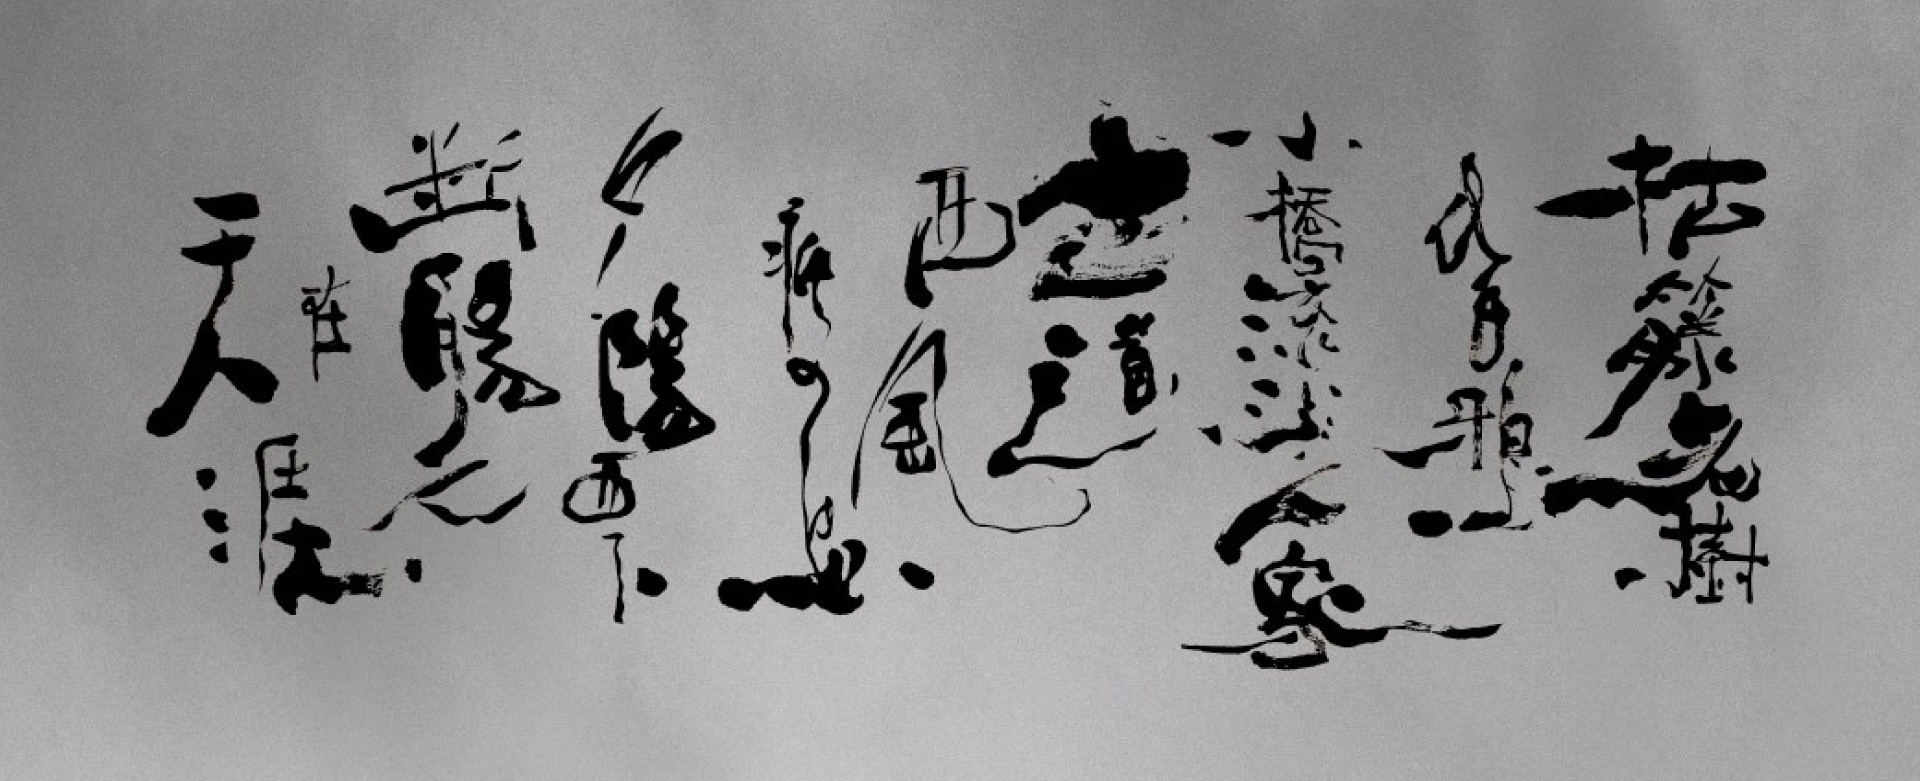 枯藤老樹
昏鴉
小橋流水人家
古道
西風
瘦馬
夕陽西下
斷腸人
在
天涯